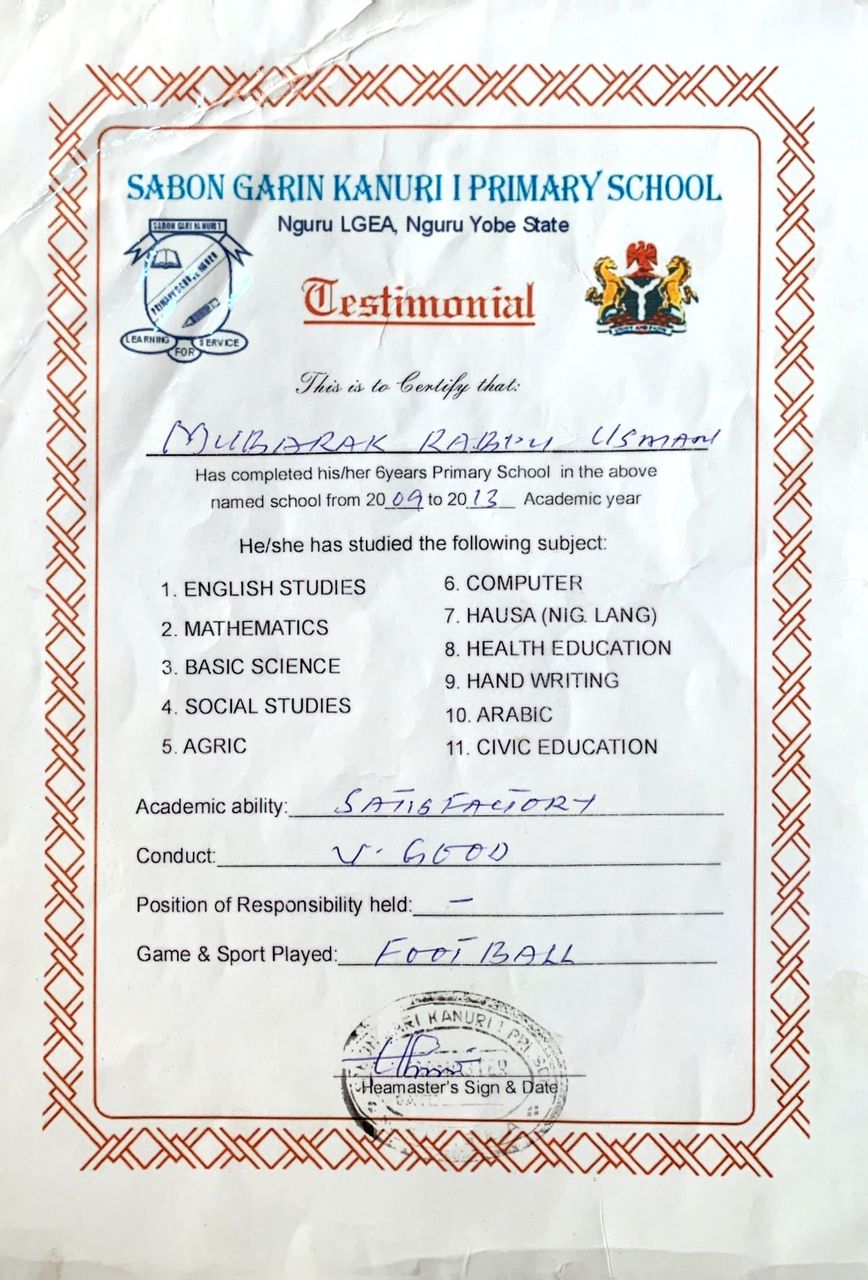 SABON GARIN KANURI I PRIMARY SCHOOL
Nguru LGEA, Nguru Yobe State
SABON GARI KANURI 1
PRIMARY SCHOOL NGURU
LEARNING FOR SERVICE
Testimonial
UNITY AND FAITH
This is to Certify that:
MUBARAK RABIU USMAN
Has completed his/her 6years Primary School in the above
named school from 2009 to 2013 Academic year
He/she has studied the following subject:
1. ENGLISH STUDIES
2. MATHEMATICS
3. BASIC SCIENCE
4. SOCIAL STUDIES
5. AGRIC
6. COMPUTER
7. HAUSA (NIG. LANG)
8. HEALTH EDUCATION
9. HAND WRITING
10. ARABIC
11. CIVIC EDUCATION
Academic ability: SATISFACTORY
Conduct: V. GOOD
Position of Responsibility held: –
Game & Sport Played: FOOTBALL
GARI KANURI 1 PRI
Heamaster's Sign & Date